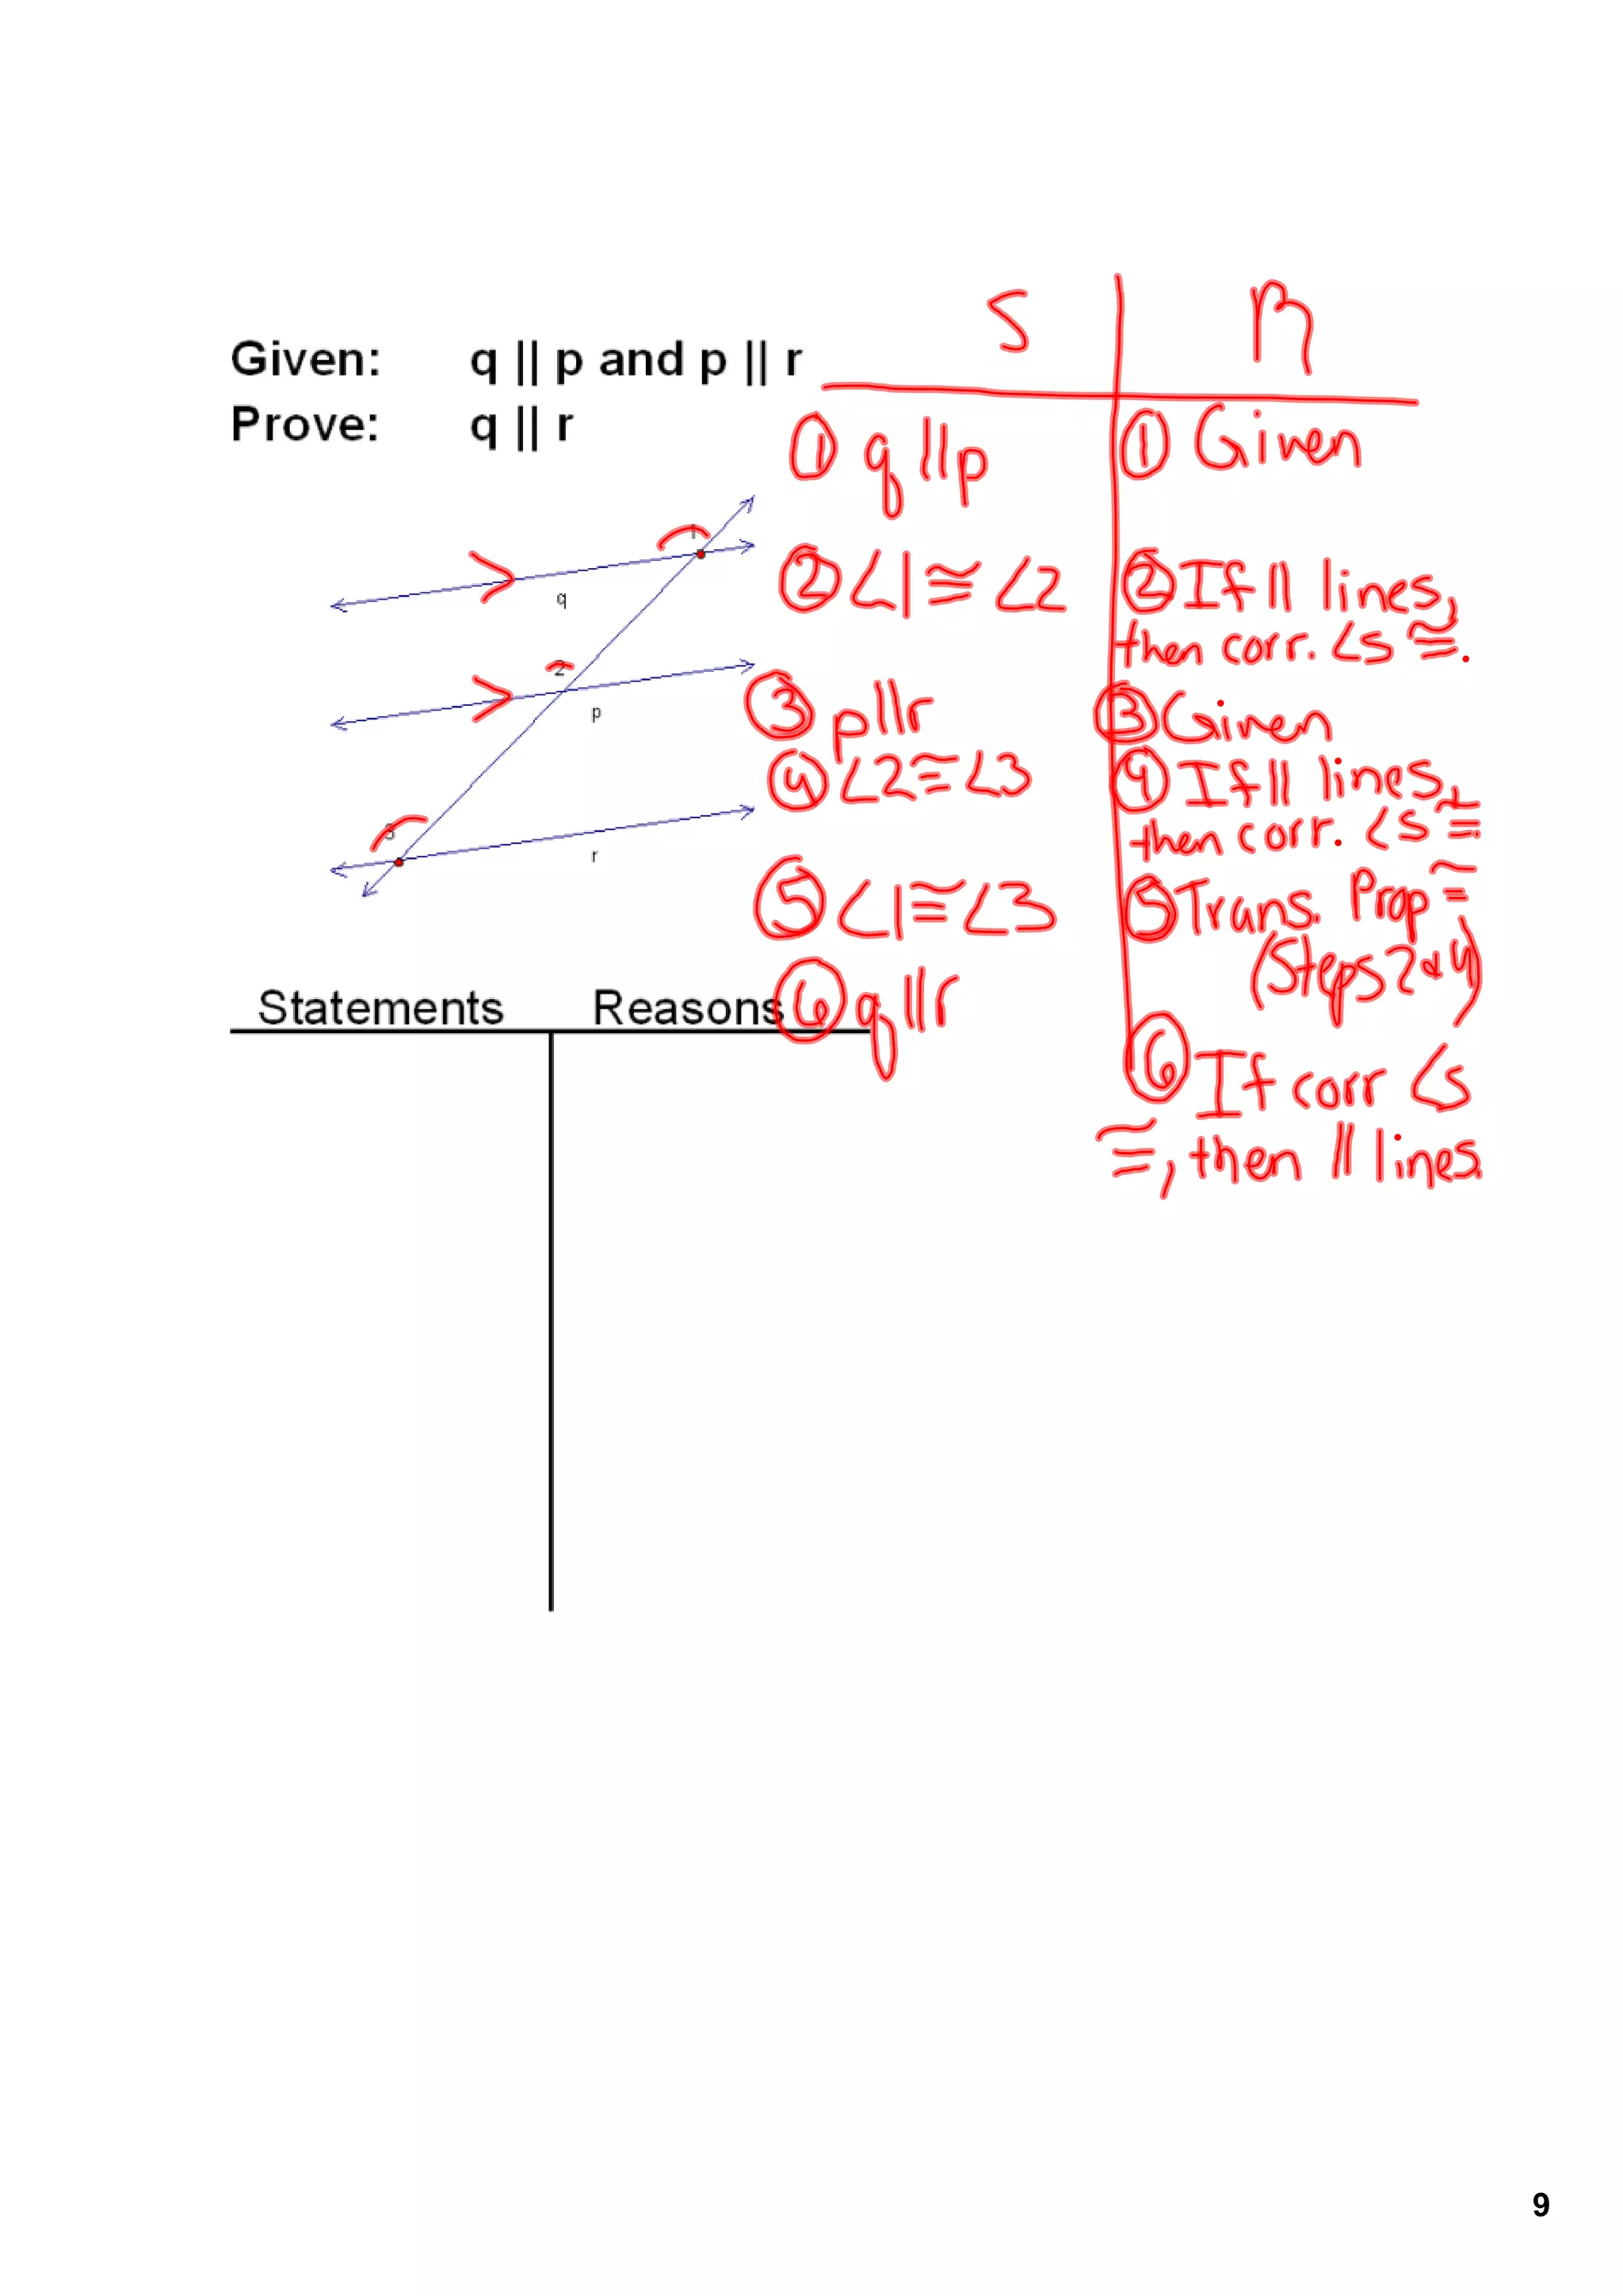 Given: q || p and p || r
Prove: q || r
S R
① q || p ① Given
② ∠1 ≅ ∠2 ② If || lines,
then corr. ∠s ≅.
③ p || r ③ Given
④ ∠2 ≅ ∠3 ④ If || lines,
then corr. ∠s ≅
⑤ ∠1 ≅ ∠3 ⑤ Trans. Prop ≅
(Steps 2 & 4)
⑥ q || r ⑥ If corr ∠s
≅, then || lines
1
q
2
p
3
r
Statements Reasons
9